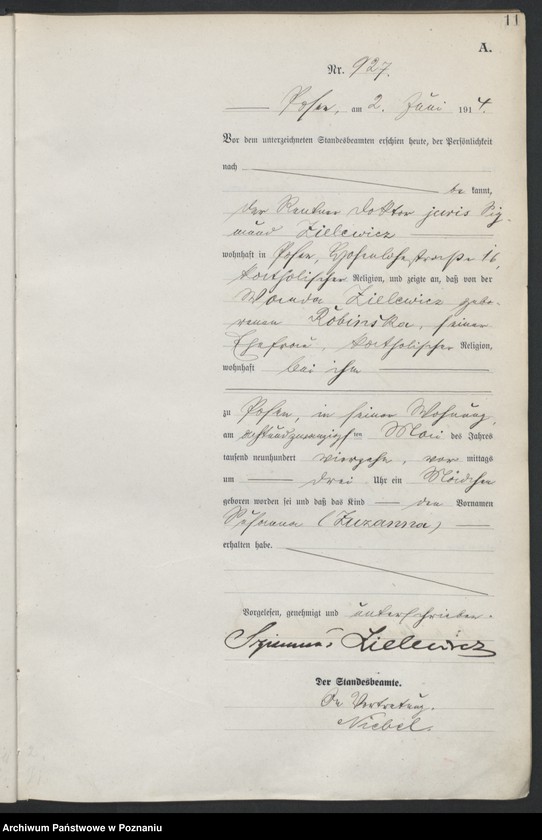 11
A.
Nr. 927.
Posen, am 2. Juni 1914.
Vor dem unterzeichneten Standesbeamten erschien heute, der Persönlichkeit
nach
be kannt,
der Rentner Doktor juris Sig-
mund Zielewicz
wohnhaft in Posen, Hohenlohestraße 16,
katholischer Religion, und zeigte an, daß von der
Wanda Zielewicz gebo-
renen Robinska, seiner
Ehefrau, katholischer Religion,
wohnhaft bei ihm
zu Posen, in seiner Wohnung,
am achtundzwanzigsten Mai des Jahres
tausend neunhundert vierzehn, vor mittags
um drei Uhr ein Mädchen
geboren worden sei und daß das Kind den Vornamen
Susanna (Zuzanna)
erhalten habe.
Vorgelesen, genehmigt und unterschrieben.
Zielewicz
Der Standesbeamte.
In Vertretung.
Niebel.
Archiwum Państwowe w Poznaniu